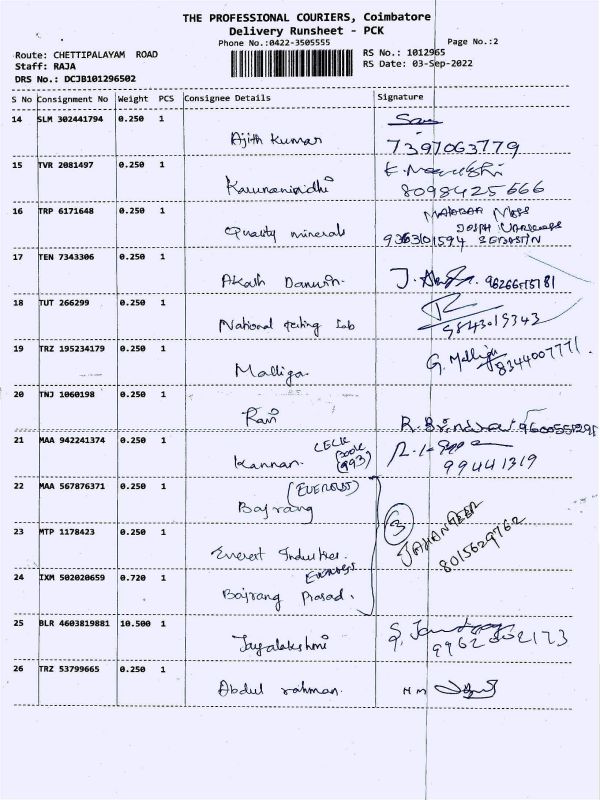 THE PROFESSIONAL COURIERS, Coimbatore
Delivery Runsheet - PCK
Phone No.:0422-3505555
Page No.:2
Route: CHETTIPALAYAM ROAD
RS No.: 1012965
Staff: RAJA
RS Date: 03-Sep-2022
DRS No.: DCJB101296502
S No Consignment No Weight PCS Consignee Details Signature
14 SLM 302441794 0.250 1
Ajith Kumar 7397063779
15 TVR 2081497 0.250 1
Karunanindhi 8098425666
16 TRP 6171648 0.250 1
Quality minerals 9363101594
17 TEN 7343306 0.250 1
Akash Danwin.
18 TUT 266299 0.250 1
National testing Lab 9843019343
19 TRZ 195234179 0.250 1
Malliga G. Malliga 8344007771.
20 TNJ 1060198 0.250 1
Ravi
21 MAA 942241374 0.250 1
Kannan. 99441319
22 MAA 567876371 0.250 1
(EVEREST)
Bajrang
23 MTP 1178423 0.250 1
Everest Industries. 3 JAHANGEER 8015629762
24 IXM 502020659 0.720 1
EVEREST
Bajrang Prasad.
25 BLR 4603819881 10.500 1
Jayalakshmi
26 TRZ 53799665 0.250 1
Abdul rahman.